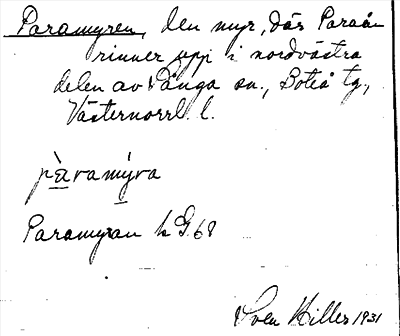 Paramyren, den myr, där Paraån
rinner upp i nordvästra
delen av Vånga sn., Boteå tg.,
Västernorrl. l.
pàramýra
Paramyran k G. 68
Sven Hiller 1931